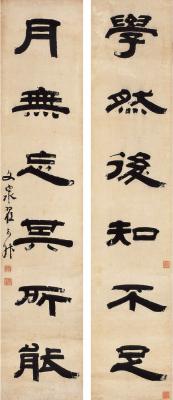 學然後知不足
月無忘其所能
文泉